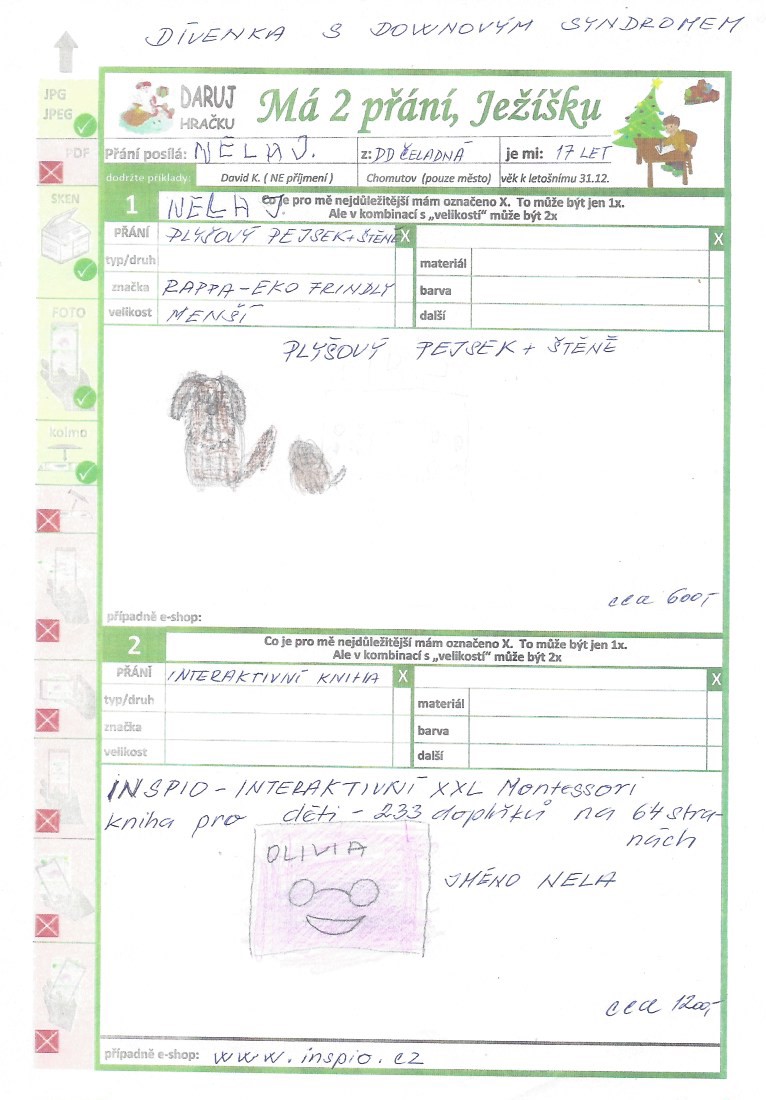 DÍVENKA S DOWNOVÝM SYNDROMEM
JPG
JPEG
PDF
SKEN
FOTO
kolmo
DARUJ
HRAČKU
Má 2 přání, Ježíšku
Přání posílá: NELA J. z: DD ČELADNÁ je mi: 17 LET
dodržte příklady: David K. ( NE příjmení ) Chomutov (pouze město) věk k letošnímu 31.12.
1 NELA J. Co je pro mě nejdůležitější mám označeno X. To může být jen 1x.
Ale v kombinací s „velikostí“ může být 2x
PŘÁNÍ PLYŠOVÝ PEJSEK + ŠTĚNĚ X X
typ/druh materiál
značka RAPPA - EKO FRINDLY barva
velikost MENŠÍ další
PLYŠOVÝ PEJSEK + ŠTĚNĚ
cca 600,-
případně e-shop:
2 Co je pro mě nejdůležitější mám označeno X. To může být jen 1x.
Ale v kombinací s „velikostí“ může být 2x
PŘÁNÍ INTERAKTIVNÍ KNIHA X X
typ/druh materiál
značka barva
velikost další
INSPIO - INTERAKTIVNÍ XXL Montessori
kniha pro děti - 233 doplňků na 64 stra-
nách
OLIVIA
JMÉNO NELA
cca 1200,-
případně e-shop: www.inspio.cz